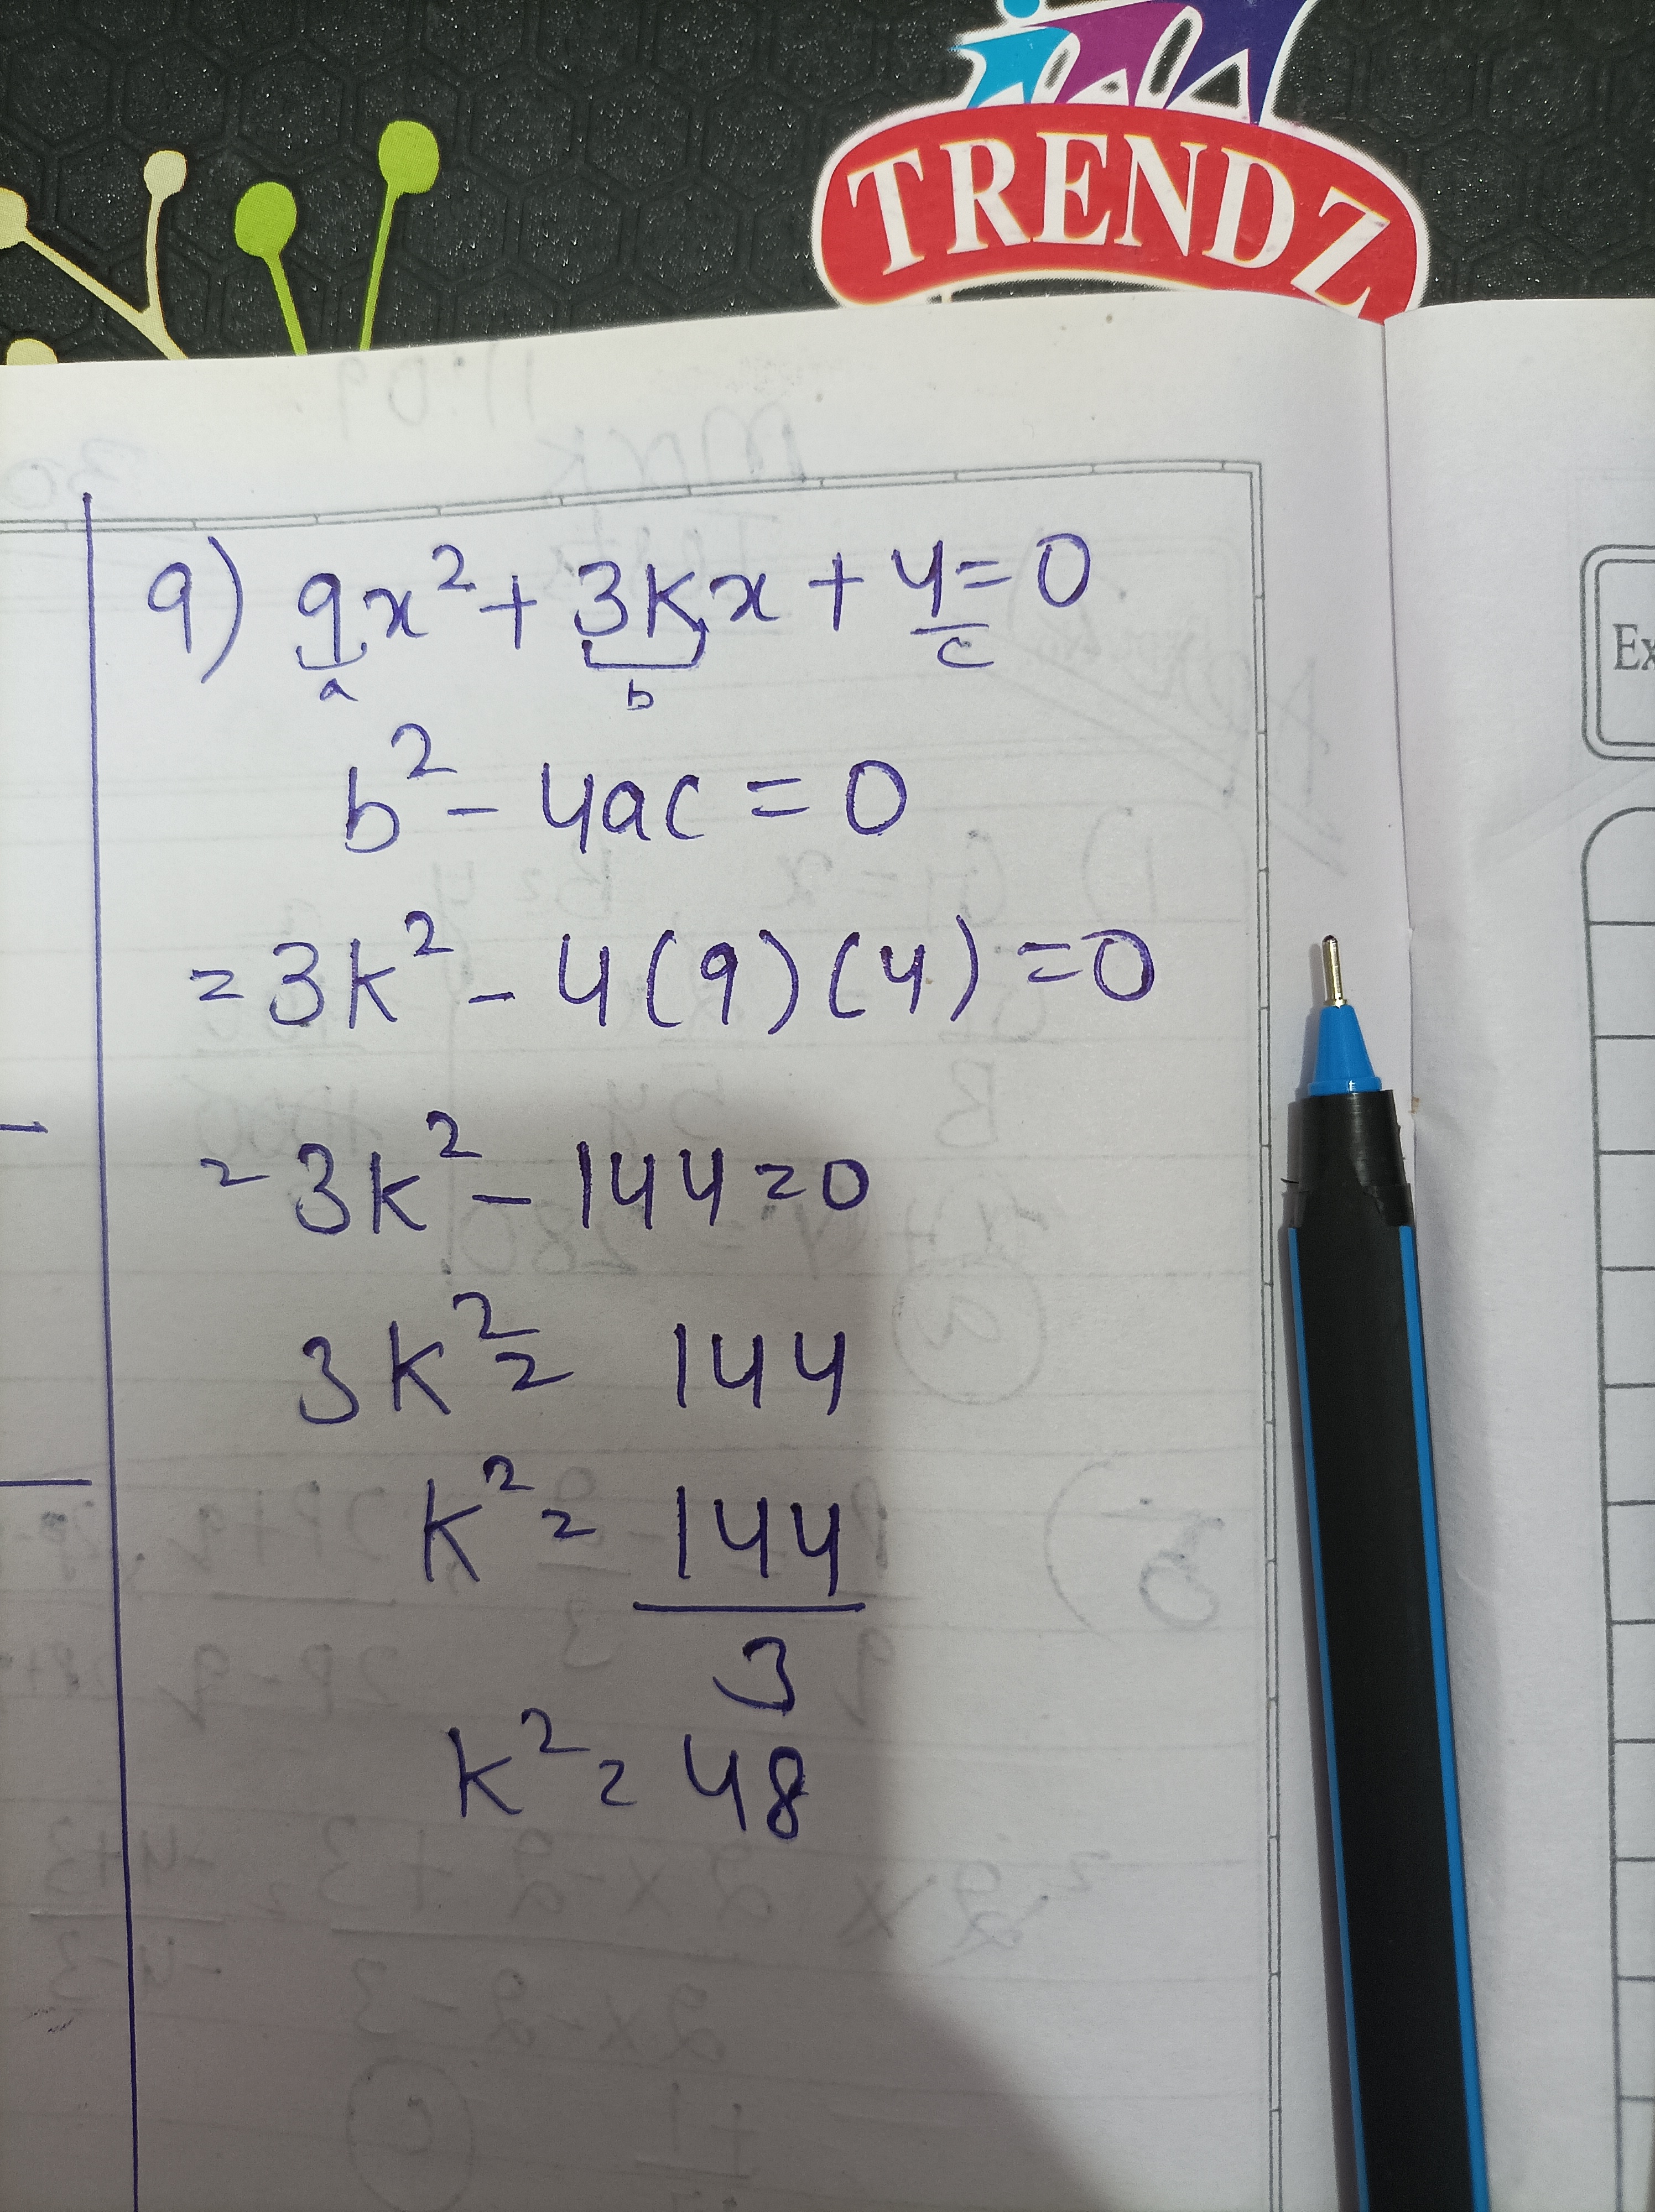 TRENDZ
9) 9x² + 3kx + 4 = 0
a b c
b² - 4ac = 0
= 3k² - 4(9)(4) = 0
= 3k² - 144 = 0
3k² = 144
k² = 144
3
k² = 48
Ex